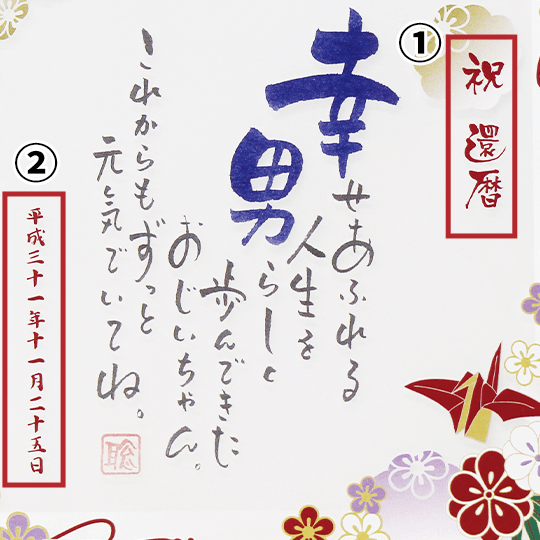 ①
祝 還暦
幸せあふれる
人生を
男らしく
歩んできた
おじいちゃん。
これからもずっと
元気でいてね。
聡
②
平成三十一年十一月二十五日